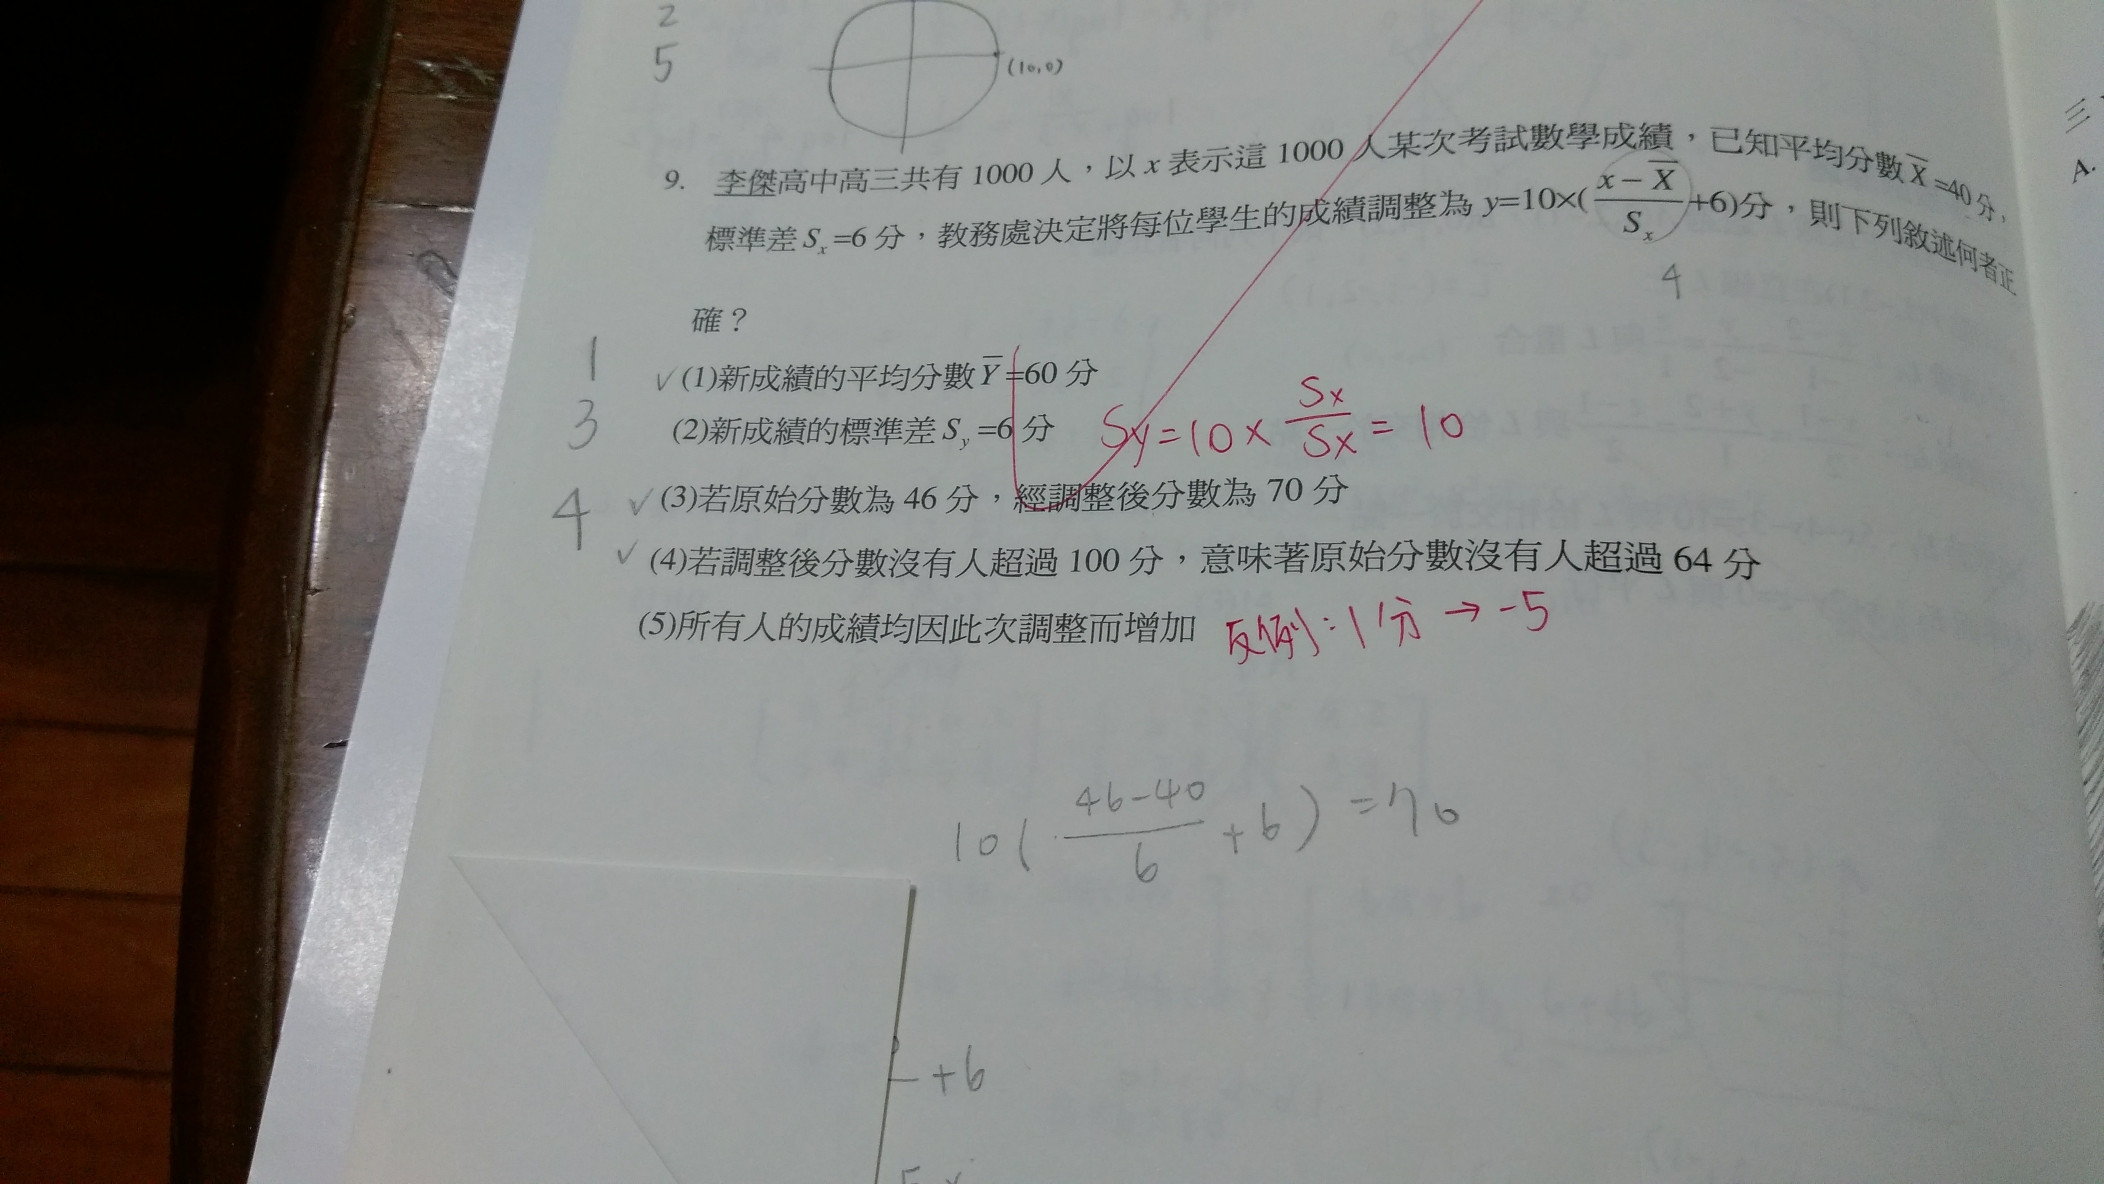 2
5
(10,0)
9. 李傑高中高三共有 1000 人，以 x 表示這 1000 人某次考試數學成績，已知平均分數 X̄=40 分，
標準差 Sₓ=6 分，教務處決定將每位學生的成績調整為 y=10×((x−X̄)/Sₓ+6)分，則下列敘述何者正
4
確？
1
✓(1)新成績的平均分數 Ȳ=60 分
3
(2)新成績的標準差 S_y=6 分 Sy=10×Sx/Sx=10
4
✓(3)若原始分數為 46 分，經調整後分數為 70 分
✓(4)若調整後分數沒有人超過 100 分，意味著原始分數沒有人超過 64 分
(5)所有人的成績均因此次調整而增加 反例:1分→-5
10((46-40)/6+6)=70
+6
三
A.